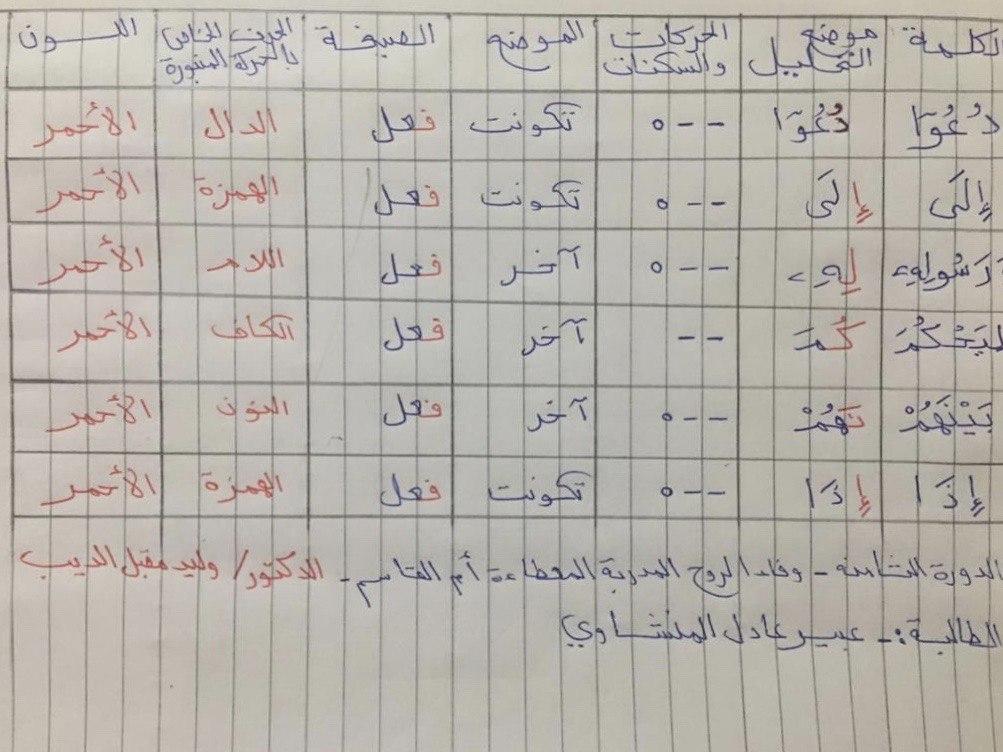 الكلمة موضع التحليل الحركات والسكنات الموضع الصيغة الحرف الخاص بالحركة المبتورة اللون
دُعُوٓا دُعُوٓا --ه تكونت فعل الدال الأحمر
إِلَى إِلَى --ه تكونت فعل الهمزة الأحمر
وَرَسُولِهِۦ لِهِۦ --ه آخر فعل اللام الأحمر
لِيَحْكُمَ كُمَ -- آخر فعل الكاف الأحمر
بَيْنَهُمْ نَهُمْ --ه آخر فعل النون الأحمر
إِذَا إِذَا --ه تكونت فعل الهمزة الأحمر
الدورة الثامنة - وفاء الروح المدربة المعطاءة أم القاسم - الدكتور/ وليد مقبل الديب
الطالبة:- عبير عادل المنشاوي